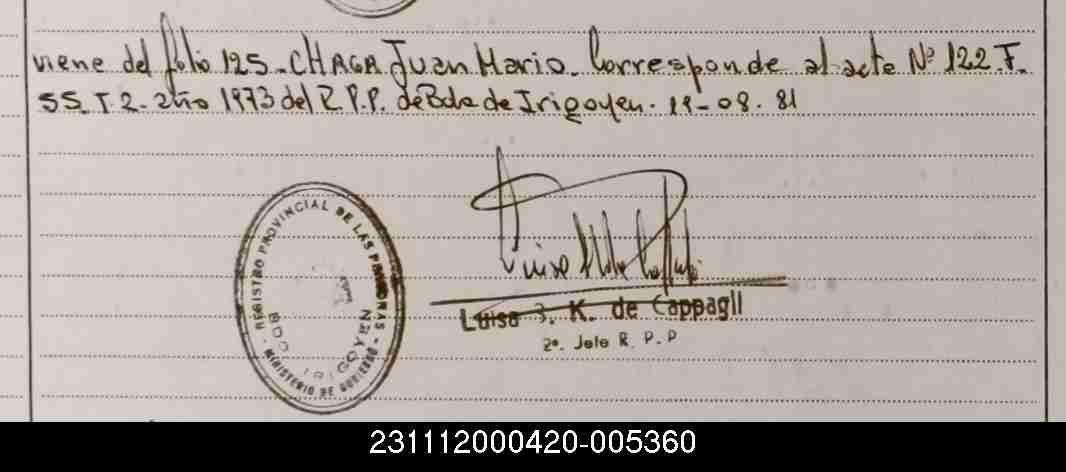 viene del folio 125. CHAGA Juan Mario. Corresponde al acta Nº 122. F.
55 T. 2. año 1973 del R.P.P. de Bdo de Irigoyen. 19-08. 81
REGISTRO PROVINCIAL DE LAS PERSONAS
BDO IRIGOYEN
- MINISTERIO DE GOBIERNO -
Luisa K. de Cappagli
2º. Jefe R. P. P
231112000420-005360